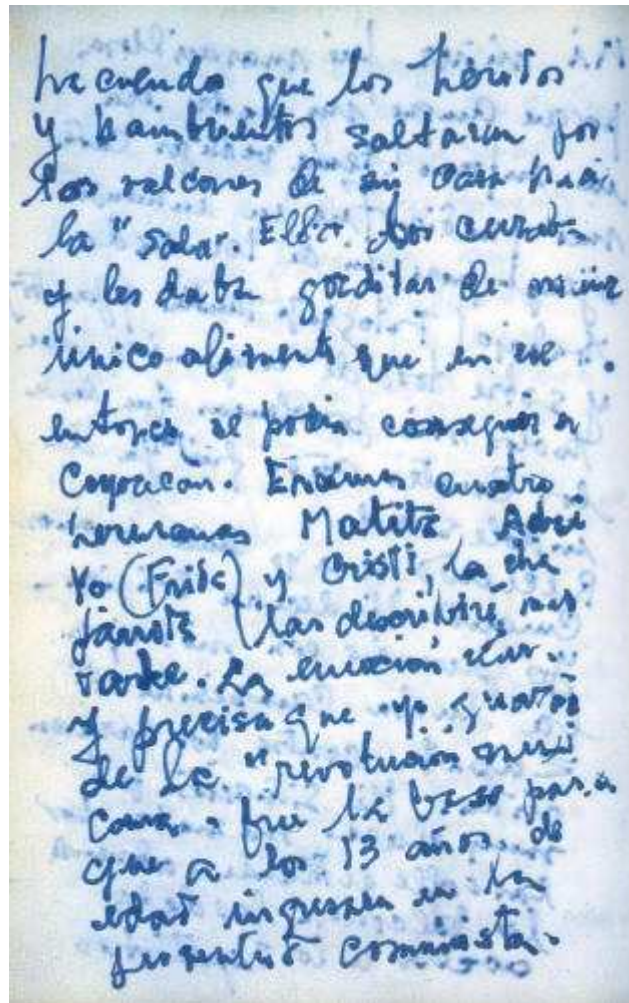 recuerdo que los heridos
y hambrientos saltaran por
los valcones de mi casa hacia
la "sala". Ella los curaba
y les daba gorditas de maiz
único alimento que en ese
entonces se podia conseguir en
Coyoacan. Eramos cuatro
hermanas Matita Adri
yo (Frida) y Cristi, la cha
parrita (las describiré mas
tarde. La emoción clara
y precisa que yo guardo
de la "revolución mexi
cana" fue la base para
que a los 13 años de
edad ingresara en la
juventud comunista.